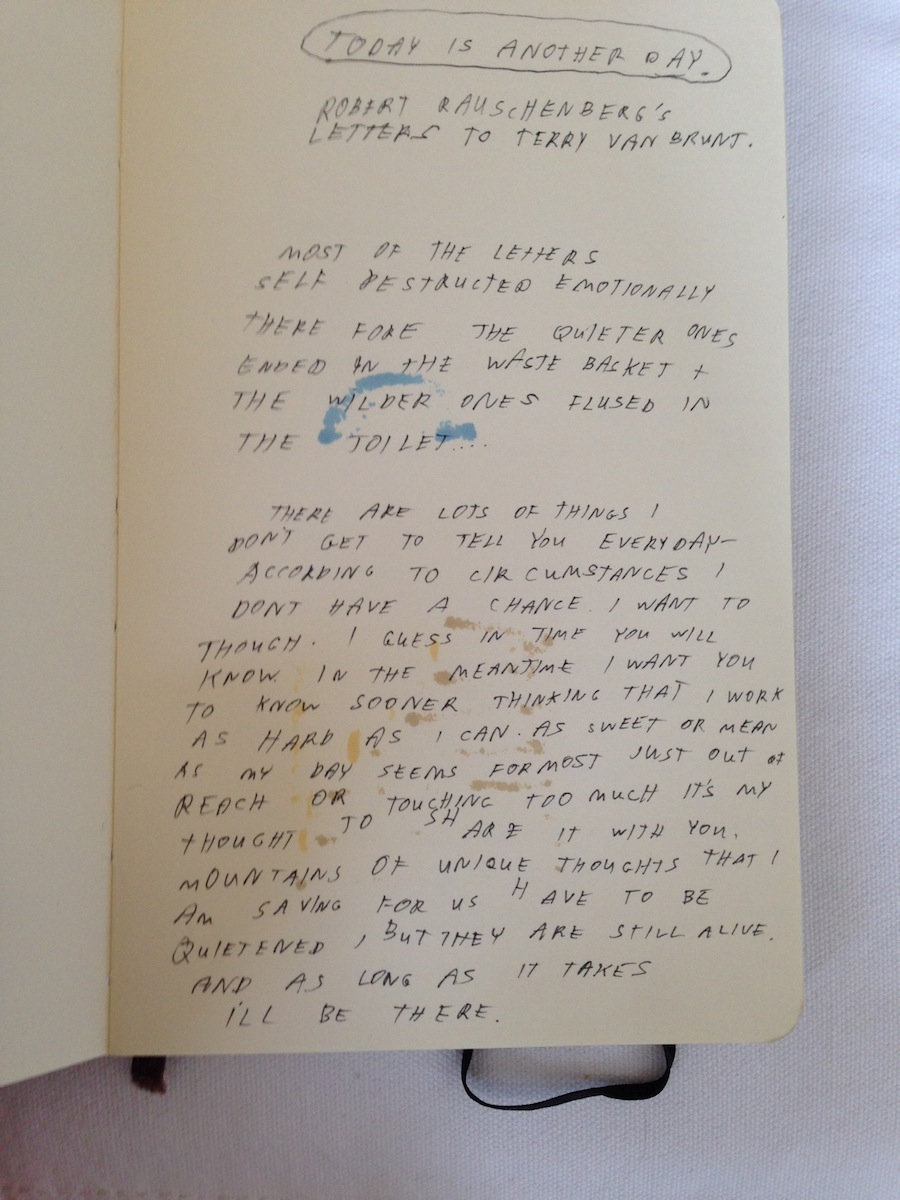 TODAY IS ANOTHER DAY.
ROBERT RAUSCHENBERG'S
LETTERS TO TERRY VAN BRUNT.
MOST OF THE LETTERS
SELF DESTRUCTED EMOTIONALLY
THERE FORE THE QUIETER ONES
ENDED IN THE WASTE BASKET +
THE WILDER ONES FLUSED IN
THE TOILET...
THERE ARE LOTS OF THINGS I
DON'T GET TO TELL YOU EVERYDAY—
ACCORDING TO CIRCUMSTANCES I
DONT HAVE A CHANCE. I WANT TO
THOUGH. I GUESS IN TIME YOU WILL
KNOW. IN THE MEANTIME I WANT YOU
TO KNOW SOONER THINKING THAT I WORK
AS HARD AS I CAN. AS SWEET OR MEAN
AS MY DAY SEEMS FORMOST JUST OUT OF
REACH OR TOUCHING TOO MUCH IT'S MY
THOUGHT TO SHARE IT WITH YOU.
MOUNTAINS OF UNIQUE THOUGHTS THAT I
AM SAVING FOR US HAVE TO BE
QUIETENED, BUT THEY ARE STILL ALIVE.
AND AS LONG AS IT TAKES
I'LL BE THERE.